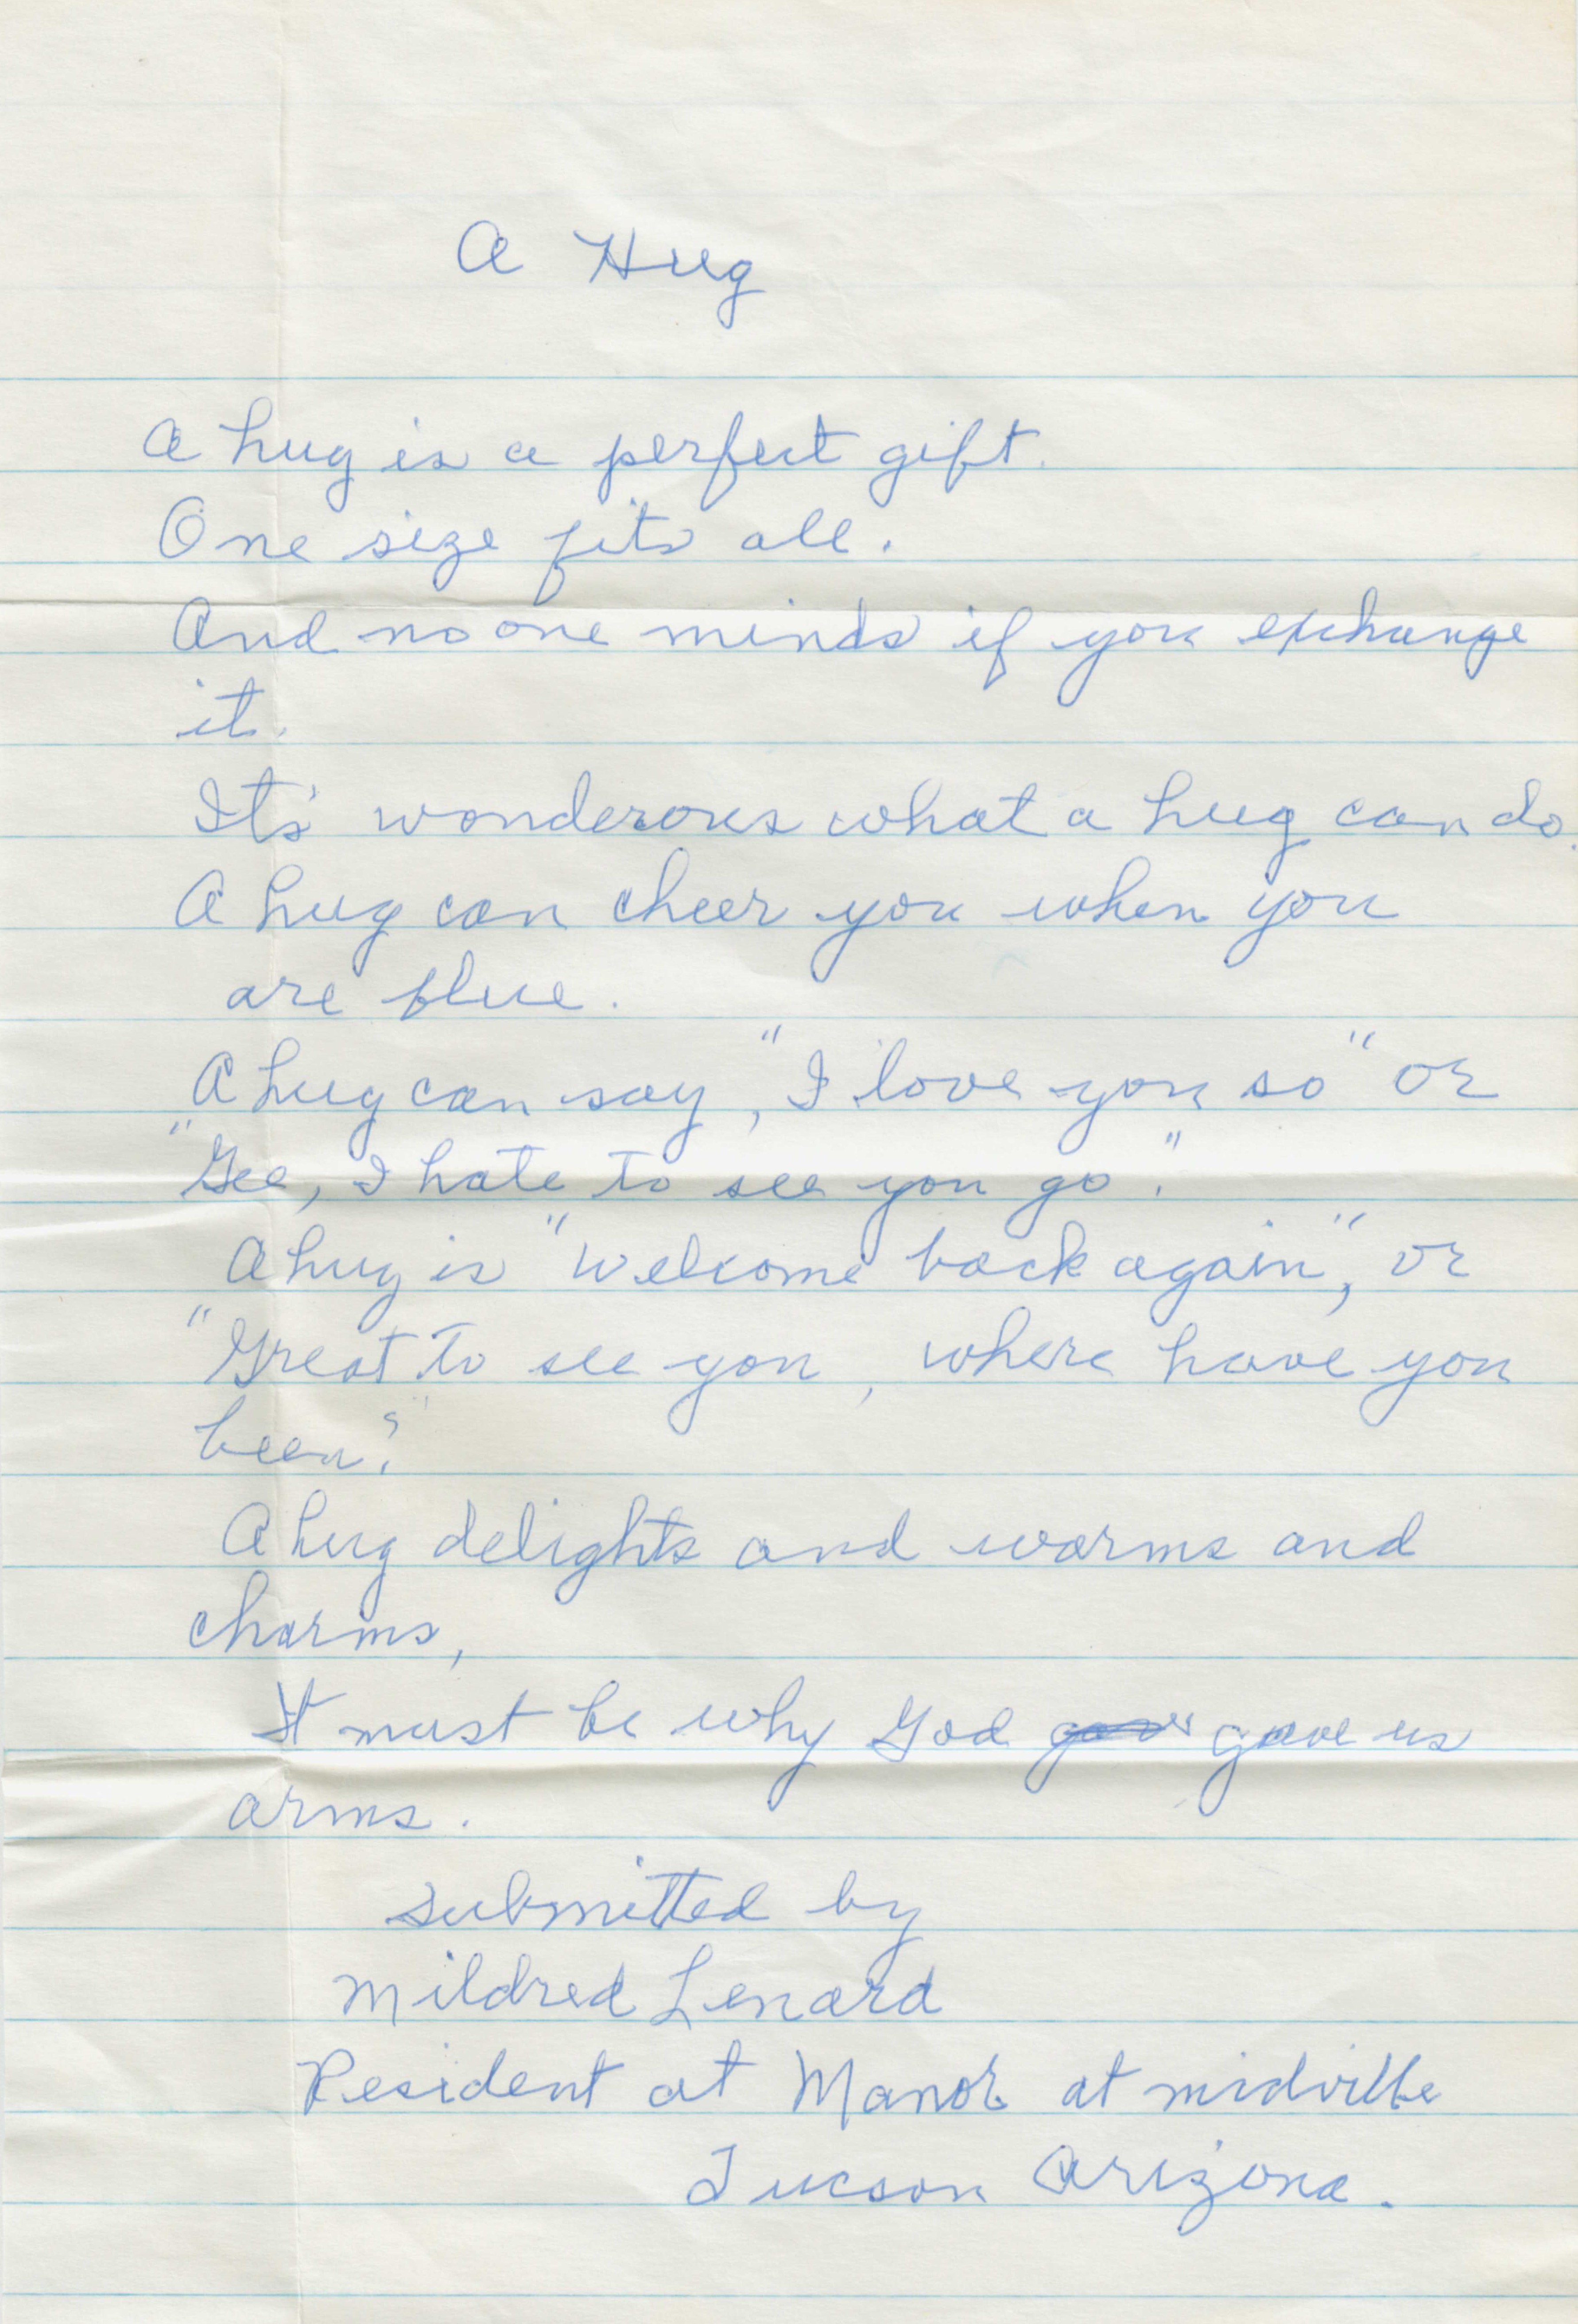 A Hug
A hug is a perfect gift.
One size fits all.
And no one minds if you exchange
it.
It's wonderous what a hug can do.
A hug can cheer you when you
are blue.
A hug can say, "I love you so" or
"Gee, I hate to see you go".
A hug is "welcome back again", or
"Great to see you, where have you
been?"
A hug delights and warms and
charms,
It must be why God gave us
arms.
submitted by
Mildred Lenard
Resident at Manor at midville
Tucson Arizona.